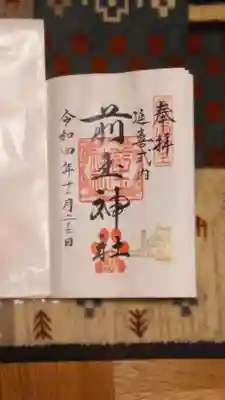 奉拝
延喜式内
前玉神社
令和四年十二月二十三日